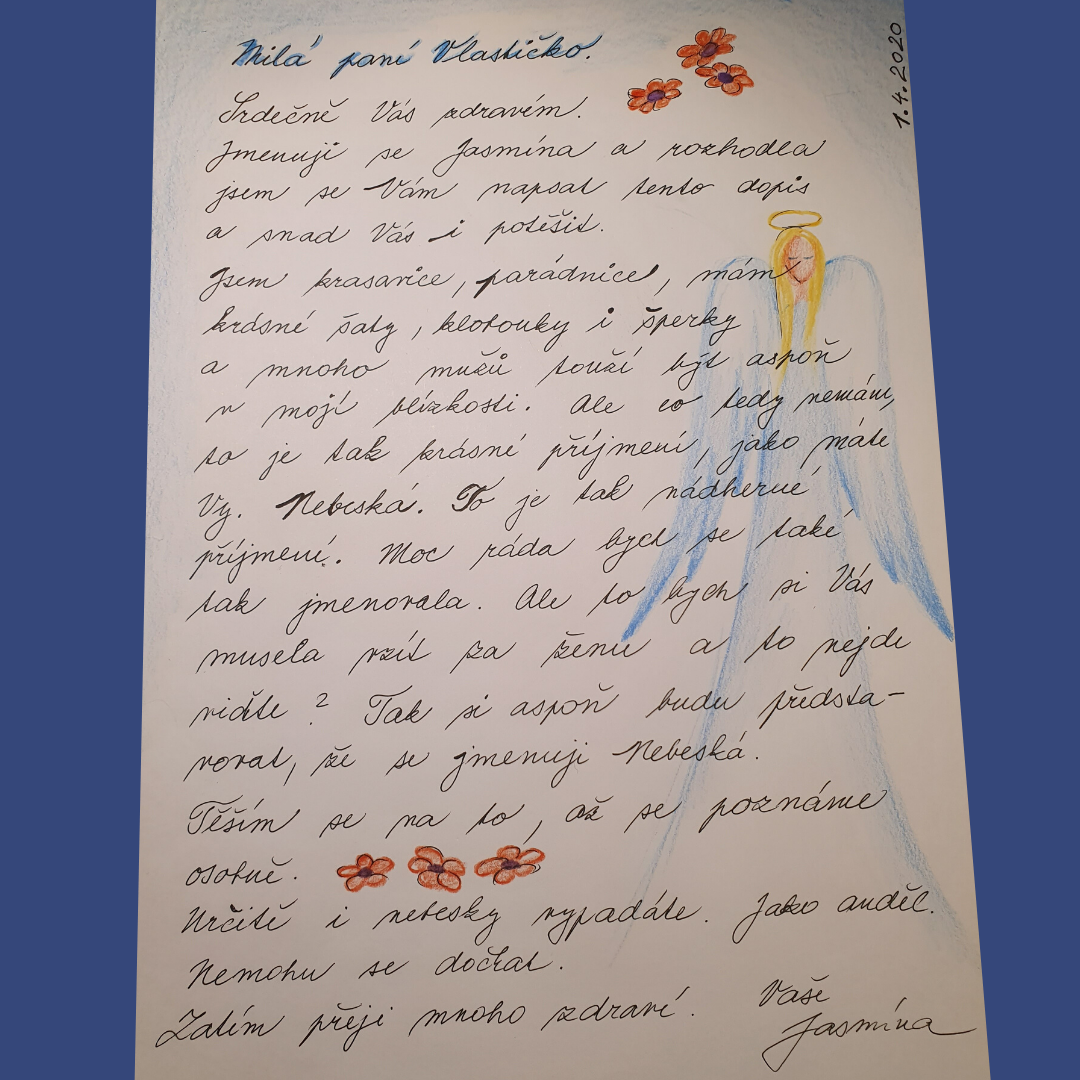 1.4.2020
Milá paní Vlastičko.
Srdečně Vás zdravém.
Jmenuji se Jasmína a rozhodla
jsem se Vám napsat tento dopis
a snad Vás i potěšit.
Jsem krasavice, parádnice, mám
krásné šaty, klobouky i šperky
a mnoho mužů touží být aspoň
v mojí blízkosti. Ale co tedy nemám,
to je tak krásné příjmení, jako máte
Vy. Nebeská. To je tak nádherné
příjmení. Moc ráda bych se také
tak jmenovala. Ale to bych si Vás
musela vzít za ženu a to nejde
viďte? Tak si aspoň budu předsta-
vovat, že se jmenuji Nebeská.
Těším se na to, až se poznáme
osobně.
Určitě i nebesky vypadáte. Jako anděl.
Nemohu se dočkat.
Zatím přeji mnoho zdraví. Vaše
Jasmína